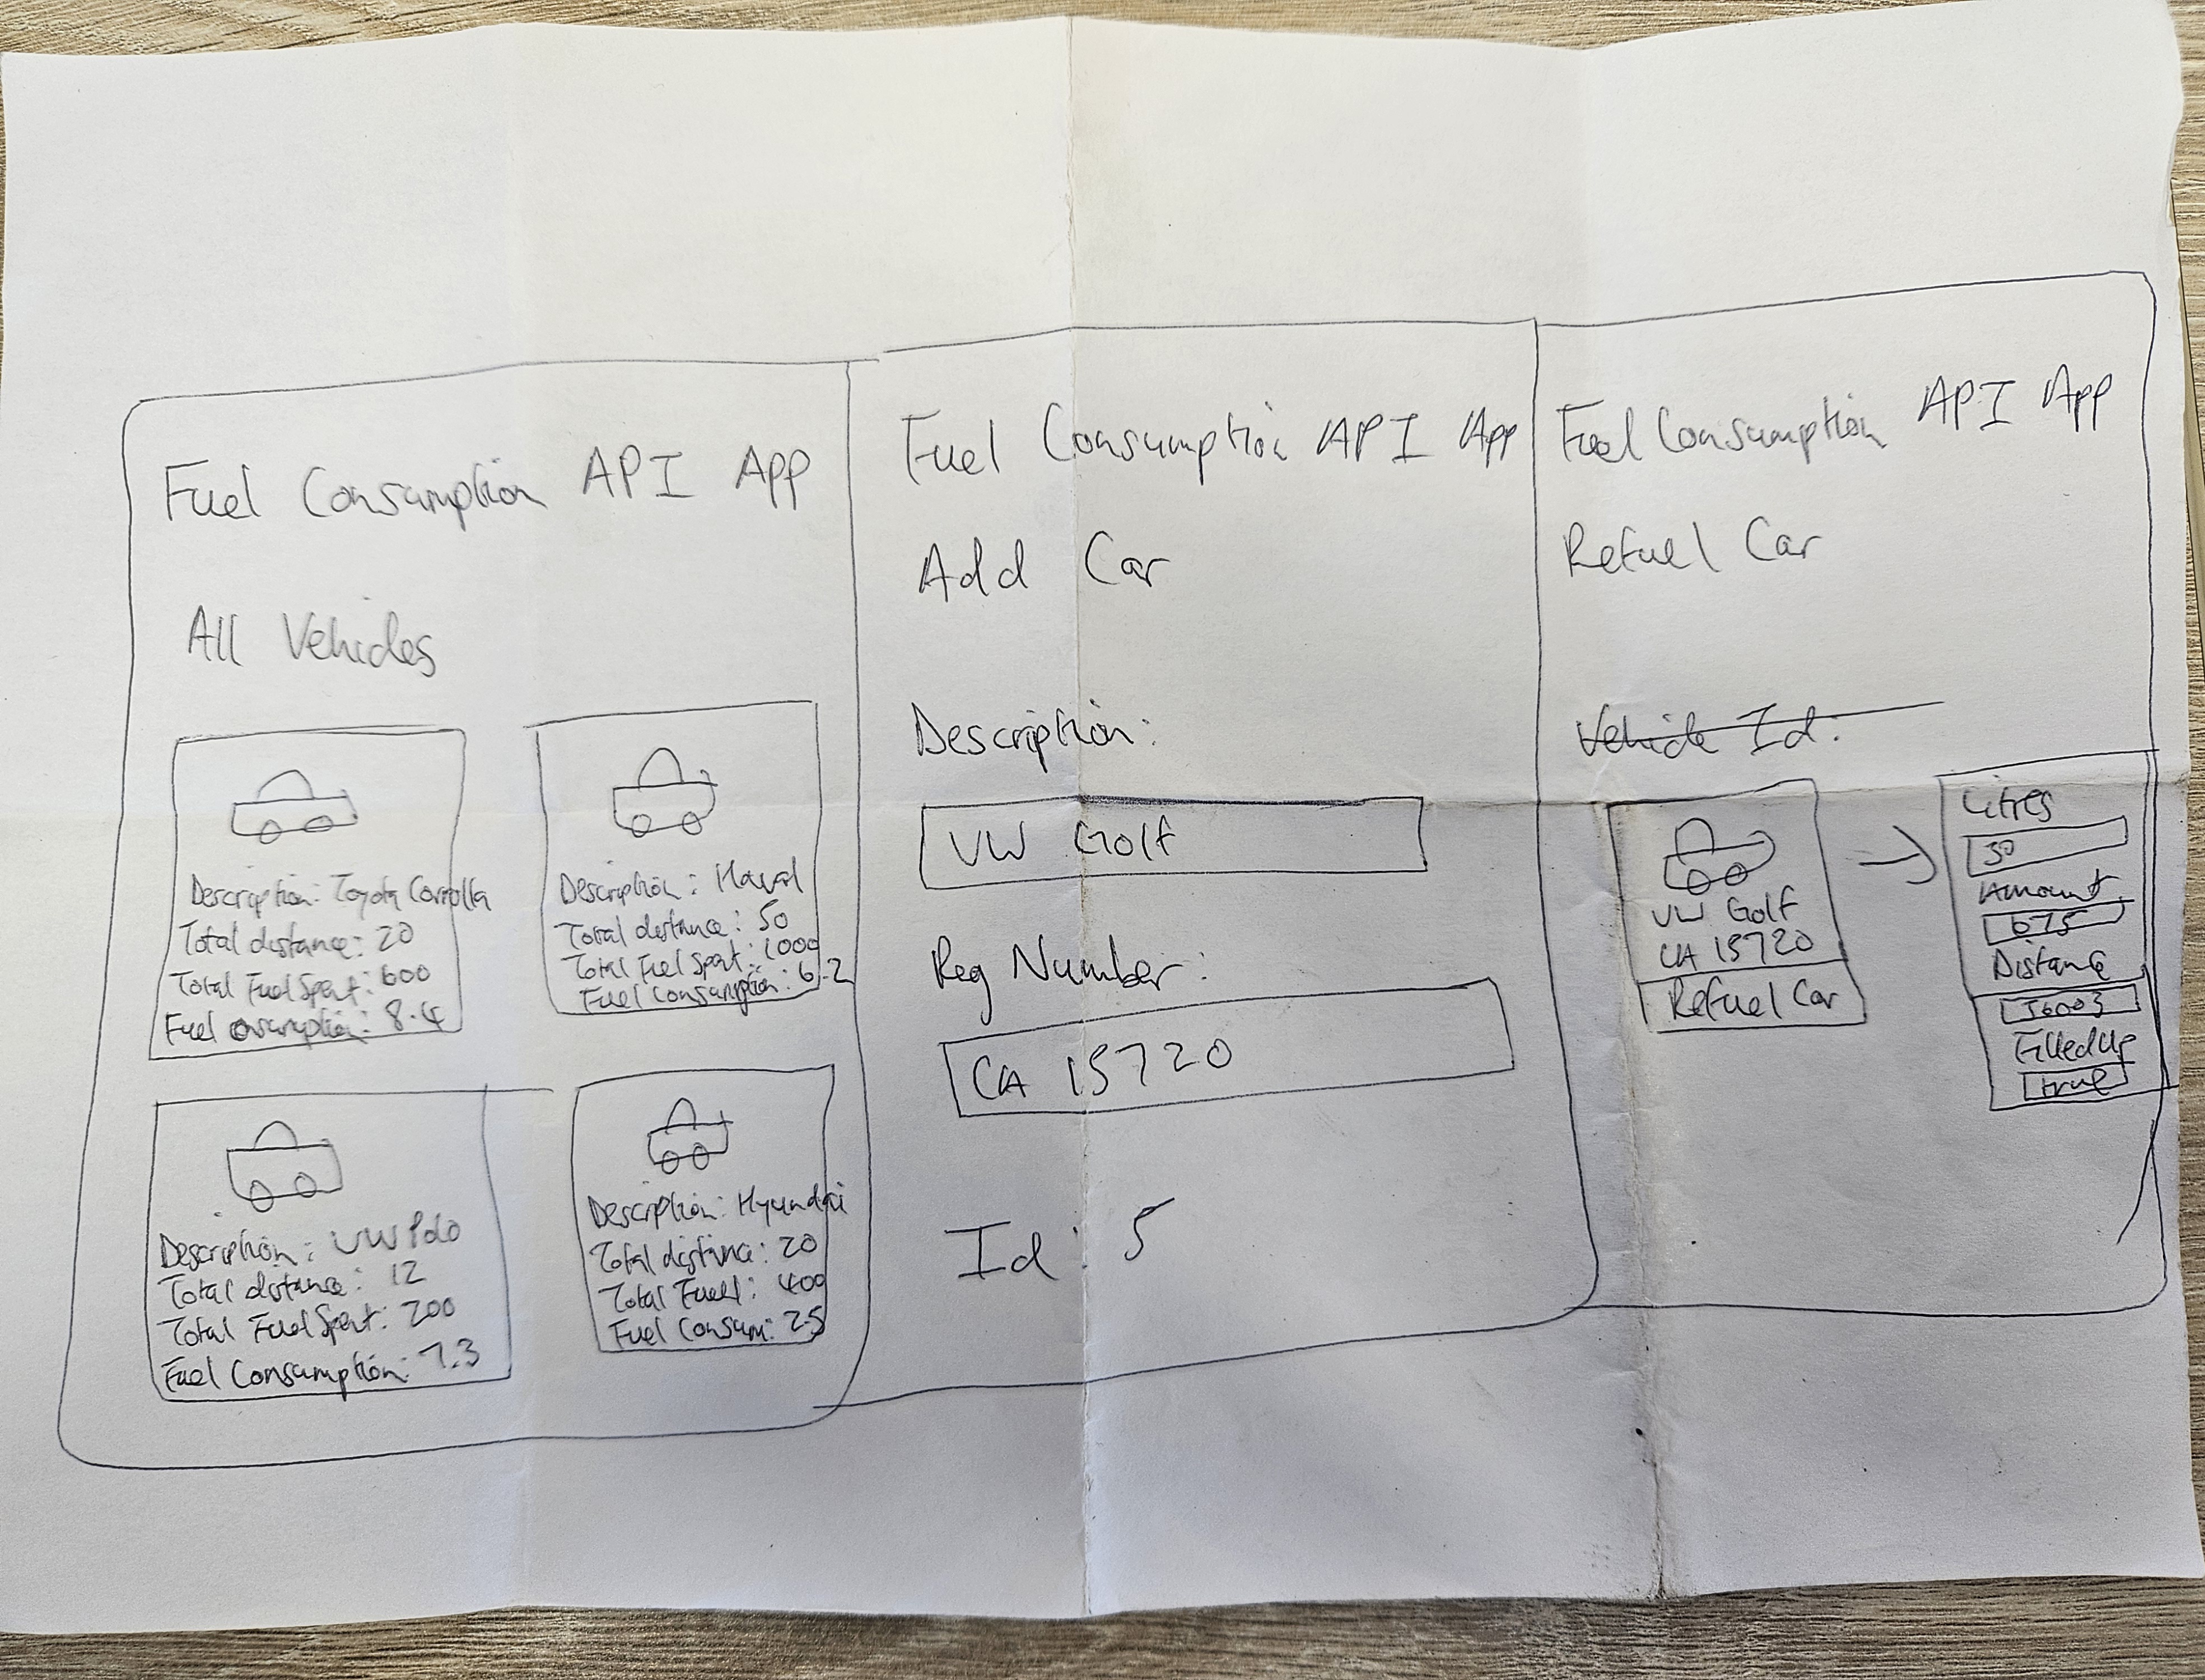 Fuel Consumption API App
All Vehicles
Description: Toyota Corrolla
Total distance: 20
Total Fuel Spent: 600
Fuel onsumption: 8.4
Description: Haval
Total distance: 50
Total Fuel Spent: 1000
Fuel Consumption: 6.2
Description: VW Polo
Total distance: 12
Total Fuel Spent: 200
Fuel Consumption: 7.3
Description: Hyundai
Total distance: 20
Total Fuel: 400
Fuel Consum: 25
Fuel Consumption API App
Add Car
Description:
VW Golf
Reg Number:
CA 15720
Id: 5
Fuel Consumption API App
Refuel Car
Vehicle Id:
VW Golf
CA 15720
Refuel Car
Litres
30
Amount
675
Distance
FilledUp
true